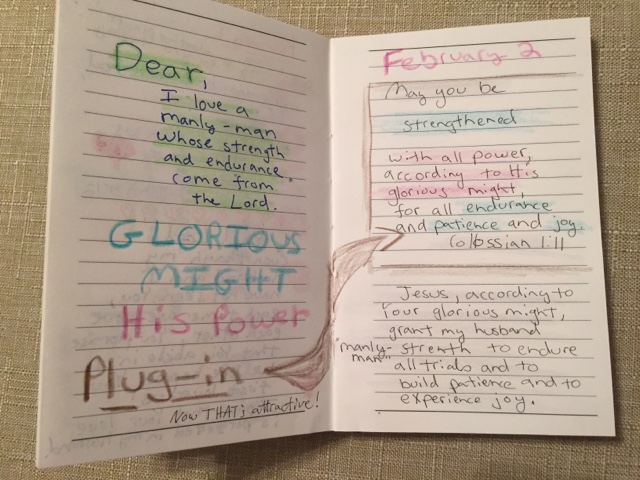 Dear,
I love a
manly-man
whose strength
and endurance
come from
the Lord.
GLORIOUS
MIGHT
His Power
Plug-in
Now THAT's attractive!
February 2
May you be
strengthened
with all power,
according to His
glorious might,
for all endurance
and patience and joy.
Colossian 1:11
Jesus, according to
Your glorious might,
grant my husband
"manly-man" strenth to endure
all trials and to
build patience and to
experience joy.